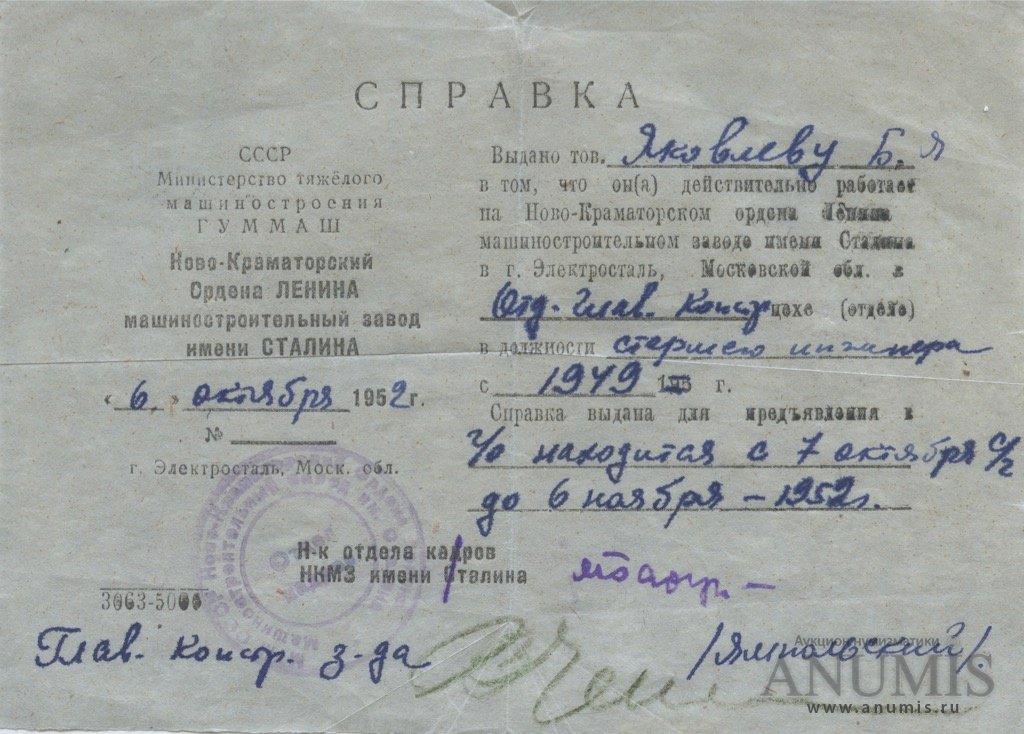 СПРАВКА
СССР
Министерство тяжёлого
машиностроения
ГУММАШ
Ново-Краматорский
Ордена ЛЕНИНА
машиностроительный завод
имени СТАЛИНА
« 6 » октября 1952 г.
№
г. Электросталь, Моск. обл.
Выдано тов. Яковлеву Б. Я
в том, что он(а) действительно работает
на Ново-Краматорском ордена Ленина
машиностроительном заводе имени Сталина
в г. Электросталь, Московской обл. в
Отд. Глав. Констр цехе (отделе)
в должности старшего инженера
с 1949 г.
Справка выдана для предъявления в
находится с 7 октября с/г
до 6 ноября - 1952г.
Н-к отдела кадров
НКМЗ имени Сталина
3063-5000
Глав. констр. з-да
/Ямпольский/.
Отдел
кадров
Аукцион нумизматики
ANUMIS
www.anumis.ru